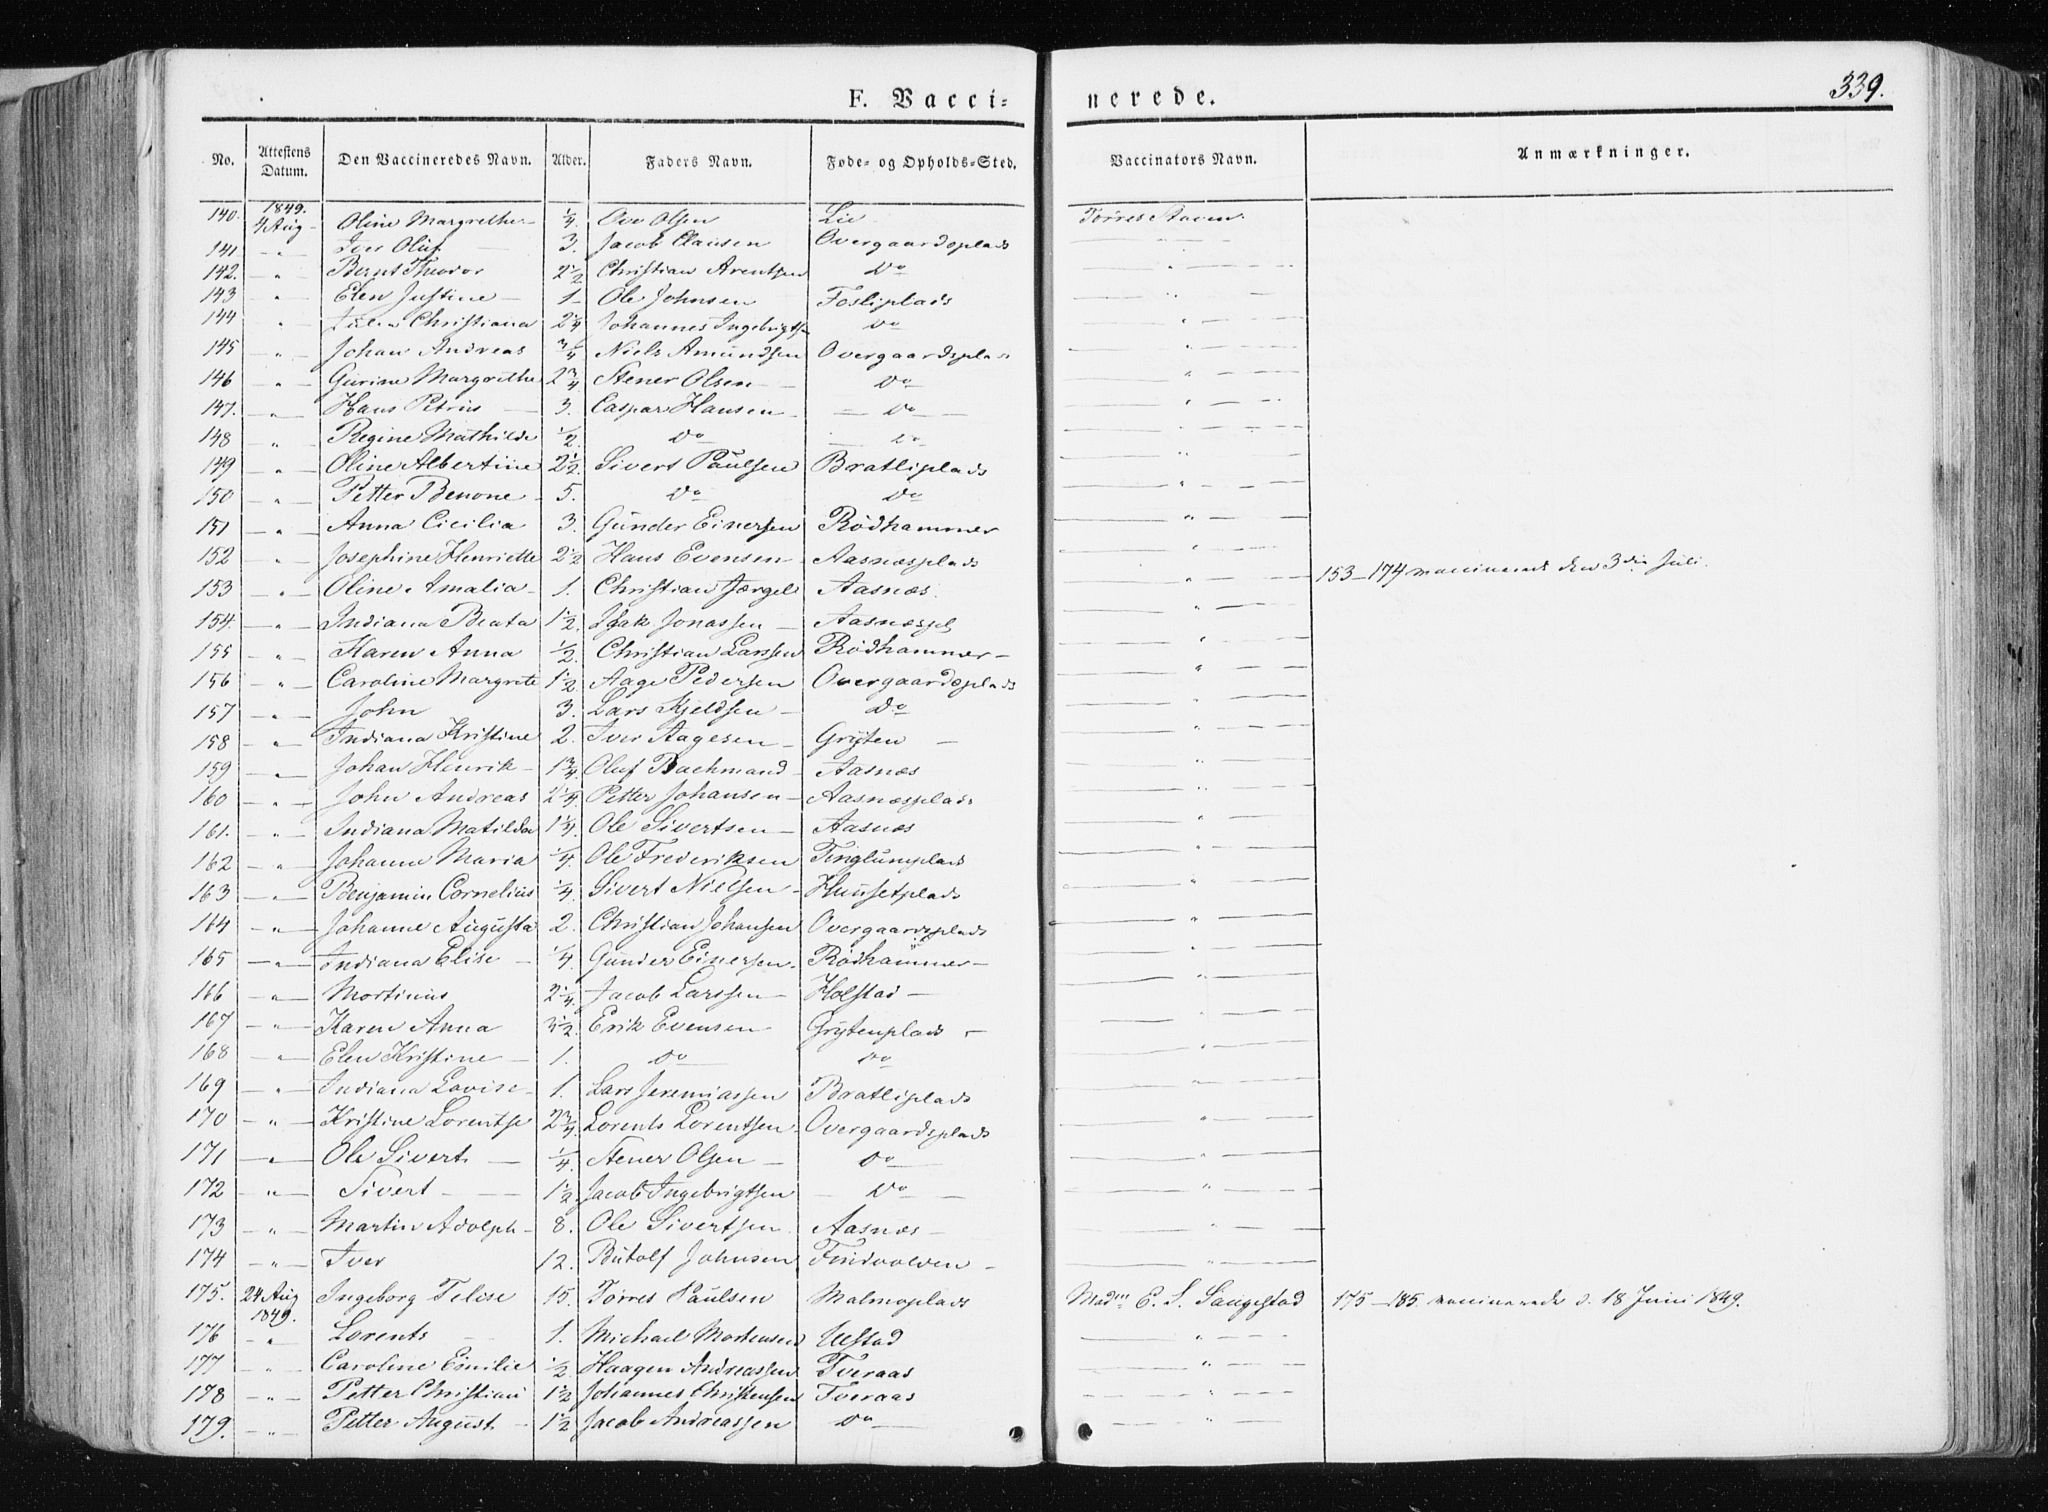 F. Vacci- nerede. 339.
No. Attestens Datum. Den Vaccineredes Navn. Alder. Faders Navn. Føde- og Opholds-Sted. Vaccinators Navn. Anmærkninger.
1849.
140. 4 Aug Oline Margrethe 1/4. Ove Olsen Lie Torres
141 " Iver Oluf 3. Jacob Clausen Overgaardsplads "
142. " Bernt Theodor 2 1/2 Christian Arentsen Do "
143 " Elen Justine 1 Ole Johnsen Fosliplads "
144 " Christiana 2 1/4 Johannes Ingebrigtsen Do "
145 " Johan Andreas 3/4 Niels Amundsen Overgaardsplads "
146 " Gurine Margrethe 2 3/4 Stener Olsen Do "
147. " Hans Petrus 3. Caspar Hansen Do "
148 " Regine Mathilde 1/2. Do Do "
149 " Oline Albertine 2 1/2. Sivert Paulsen Bratliplads "
150 " Petter Benone 5. Do Do "
151 " Anna Cicilia 3. Gunder Einersen Rødhammer "
152 " Josephine Henriette 2 1/2 Hans Evensen Aasnæsplads "
153 " Oline Amalia 1. Christian Aasnæs. " 153-174 vaccinerede den 3die Juli.
154. " Indiana Beata 1 1/2. Isak Jonassen Aasnæspl "
155 " Karen Anna 1/2 Christian Larssen Rødhammer "
156 " Caroline Margrete 1 1/2 Aage Pedersen Overgaardsplads "
157 " John 3. Lars Kjeldsen Do "
158 " Indiana Kristine 2. Iver Aagesen Gryten "
159 " Johan Henrik 1 3/4. Oluf Bachmand Aasnæs "
160 " John Andreas 2 1/4. Petter Johansen Aasnæsplads "
161. " Indiana Matilda 1 1/4. Ole Sivertsen Aasnæs "
162 " Johanna Maria 1/4. Ole Frederiksen Tinglumplads "
163 " Benjamin Cornelius 1/4. Sivert Nielsen Huusetplads "
164 " Johanne Augusta 2. Christian Johansen Overgaardsplads "
165 " Indiana Elise 1/4. Gunder Einersen. Rødhammer "
166 " Mortinus 2 1/4. Jacob Larssen Holstad "
167 " Karen Anna 3 1/2. Erik Evensen Grytenplads "
168 " Elen Kristine 1. Do Do "
169 " Indiana Lovise 1. Lars Jeremiassen Bratliplads "
170 " Kristine Lorentse 2 3/4. Lorents Lorentsen Overgaardsplads "
171 " Ole Sivert 1/4. Stener Olsen Do "
172 " Sivert 1 1/2. Jacob Ingebrigtsen Do "
173 " Martin Adolph 8. Ole Sivertsen Aasnæs "
174 " Iver 12. Butolf Johnsen Findvolden "
175. 24 Aug 1849. Ingeborg Felise 15. Torres Paulsen Malmoplads Madm E. S. Saugestad 175-185 vaccinerede d. 18 Juni 1849.
176 " Lorents 1. Michael Mortensen Uestad "
177 " Caroline Emilie 1/2 Haagen Andreassen Tveraas "
178 " Petter Christian 1 1/2 Johannes Christensen Tveraas "
179. " Petter August 1 1/2 Jacob Andreassen Do "